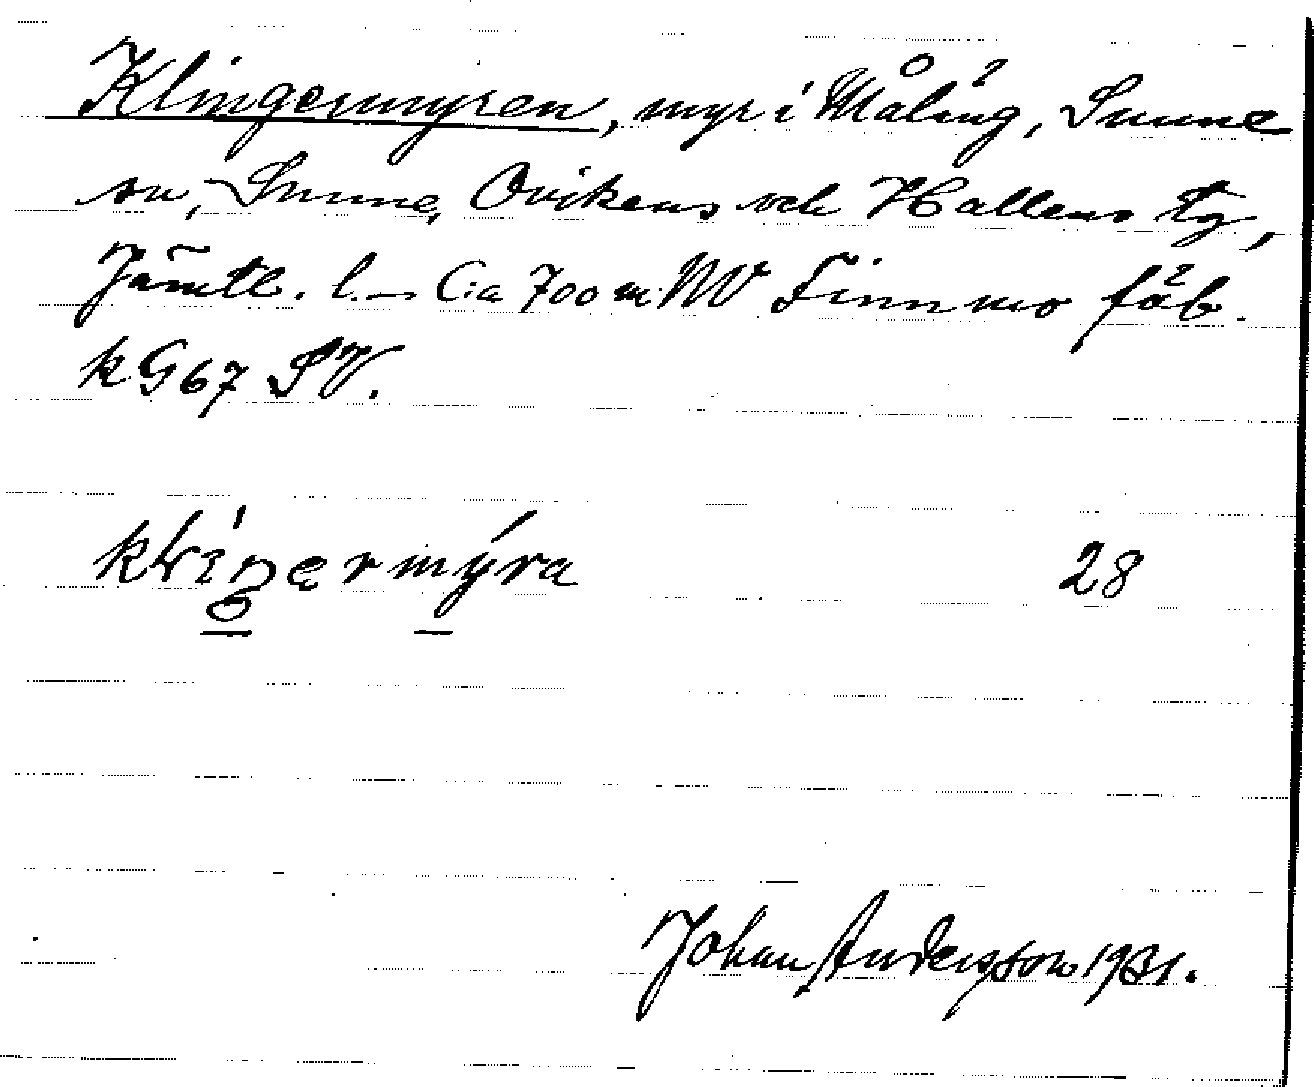 Klingermyren, myr i Måläng, Sunne
sn, Sunne, Ovikens och Hallens tg,
Jämtl. l. – C:a 700 m NV Finnmo fäb.
k G67 SV.
28
Johan Andersson 1931.